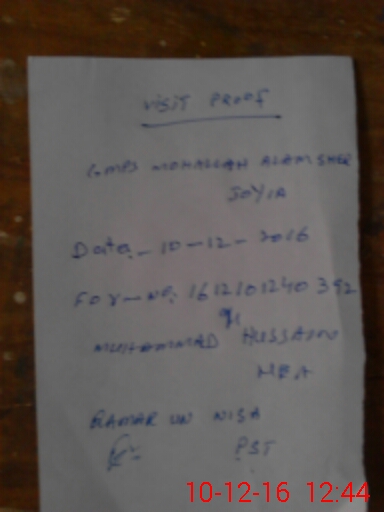 VISIT PROOF
GMPS MOHALLAH ALAM SHER
JOYIA
Date.- 10-12-2016
For-No: 1612101240392
MUHAMMAD HUSSAIN
MEA
QAMAR UN NISA
PST
10-12-16 12:44